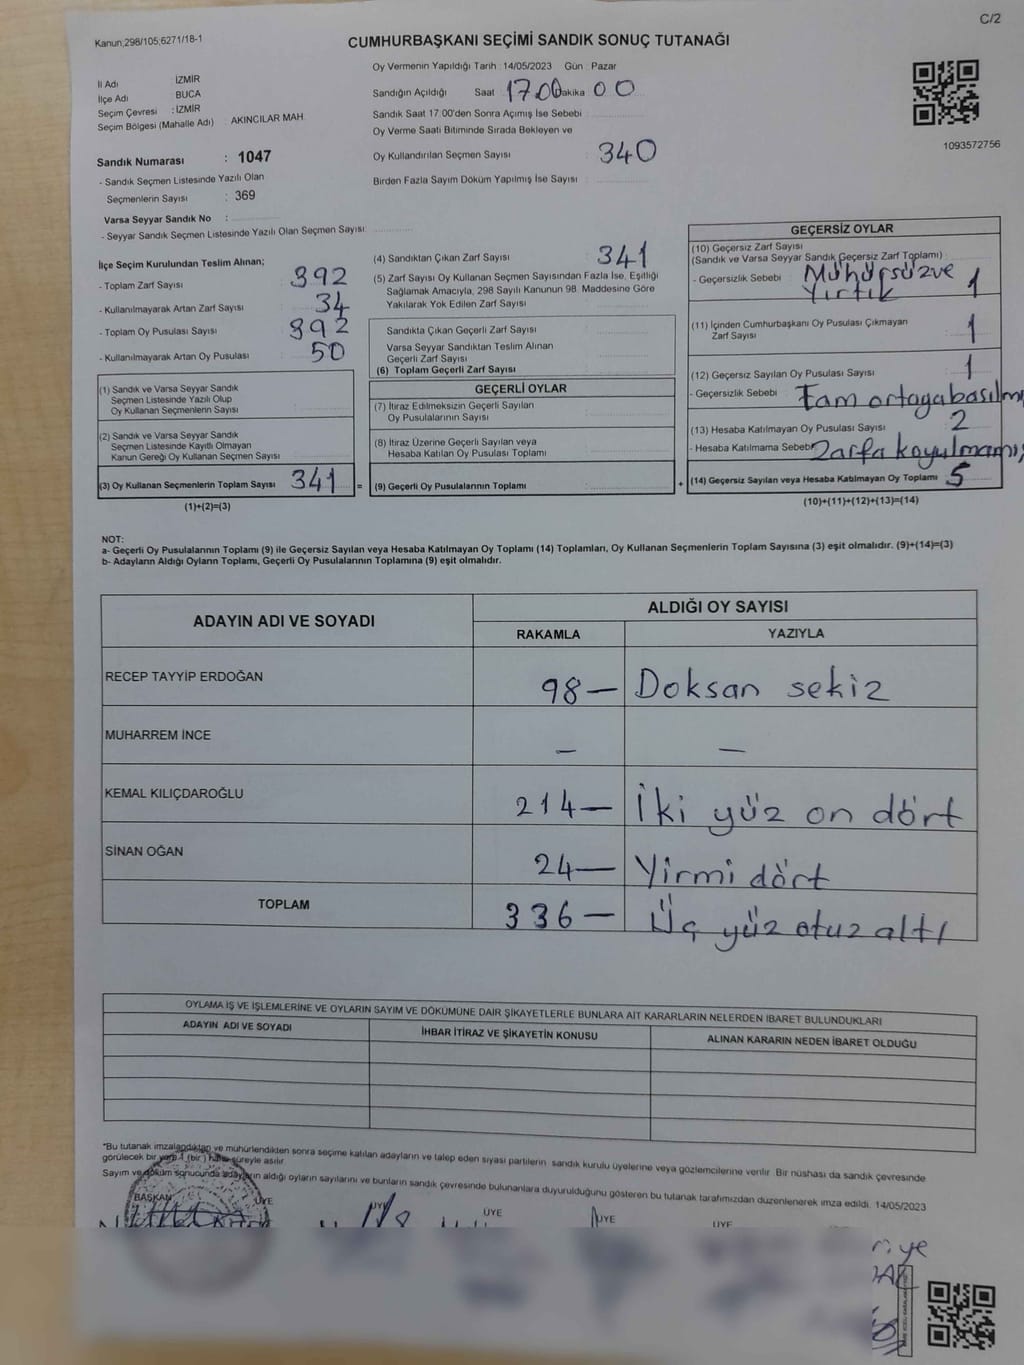 C/2
Kanun;298/105;6271/18-1
CUMHURBAŞKANI SEÇİMİ SANDIK SONUÇ TUTANAĞI
Oy Vermenin Yapıldığı Tarih : 14/05/2023 Gün : Pazar
İl Adı : İZMİR
İlçe Adı : BUCA
Seçim Çevresi : İZMİR
Seçim Bölgesi (Mahalle Adı) : AKINCILAR MAH.
Sandığın Açıldığı Saat 17.00 Dakika 00
Sandık Saat 17.00'den Sonra Açımış İse Sebebi
Oy Verme Saati Bitiminde Sırada Bekleyen ve
Oy Kullandırılan Seçmen Sayısı : 340
Birden Fazla Sayım Döküm Yapılmış İse Sayısı :
1093572756
Sandık Numarası : 1047
- Sandık Seçmen Listesinde Yazılı Olan
Seçmenlerin Sayısı : 369
Varsa Seyyar Sandık No :
- Seyyar Sandık Seçmen Listesinde Yazılı Olan Seçmen Sayısı:
İlçe Seçim Kurulundan Teslim Alınan;
- Toplam Zarf Sayısı : 392
- Kullanılmayarak Artan Zarf Sayısı : 34
- Toplam Oy Pusulası Sayısı : 392
- Kullanılmayarak Artan Oy Pusulası : 50
(1) Sandık ve Varsa Seyyar Sandık
Seçmen Listesinde Yazılı Olup
Oy Kullanan Seçmenlerin Sayısı :
(2) Sandık ve Varsa Seyyar Sandık
Seçmen Listesinde Kayıtlı Olmayan
Kanun Gereği Oy Kullanan Seçmen Sayısı :
(3) Oy Kullanan Seçmenlerin Toplam Sayısı 341 =
(1)+(2)=(3)
(4) Sandıktan Çıkan Zarf Sayısı : 341
(5) Zarf Sayısı Oy Kullanan Seçmen Sayısından Fazla İse, Eşitliği
Sağlamak Amacıyla, 298 Sayılı Kanunun 98. Maddesine Göre
Yakılarak Yok Edilen Zarf Sayısı :
Sandıkta Çıkan Geçerli Zarf Sayısı :
Varsa Seyyar Sandıktan Teslim Alınan
Geçerli Zarf Sayısı :
(6) Toplam Geçerli Zarf Sayısı :
GEÇERLİ OYLAR
(7) İtiraz Edilmeksizin Geçerli Sayılan
Oy Pusulalarının Sayısı :
(8) İtiraz Üzerine Geçerli Sayılan veya
Hesaba Katılan Oy Pusulası Toplamı :
(9) Geçerli Oy Pusulalarının Toplamı : +
GEÇERSİZ OYLAR
(10) Geçersiz Zarf Sayısı
(Sandık ve Varsa Seyyar Sandık Geçersiz Zarf Toplamı) :
- Geçersizlik Sebebi : Mühürsüz ve
Yırtık 1
(11) İçinden Cumhurbaşkanı Oy Pusulası Çıkmayan
Zarf Sayısı : 1
(12) Geçersiz Sayılan Oy Pusulası Sayısı : 1
- Geçersizlik Sebebi : Tam ortaya basılmı
(13) Hesaba Katılmayan Oy Pusulası Sayısı : 2
- Hesaba Katılmama Sebebi Zarfa koyulmamış
(14) Geçersiz Sayılan veya Hesaba Katılmayan Oy Toplamı 5
(10)+(11)+(12)+(13)=(14)
NOT:
a- Geçerli Oy Pusulalarının Toplamı (9) ile Geçersiz Sayılan veya Hesaba Katılmayan Oy Toplamı (14) Toplamları, Oy Kullanan Seçmenlerin Toplam Sayısına (3) eşit olmalıdır. (9)+(14)=(3)
b- Adayların Aldığı Oyların Toplamı, Geçerli Oy Pusulalarının Toplamına (9) eşit olmalıdır.
ADAYIN ADI VE SOYADI ALDIĞI OY SAYISI
RAKAMLA YAZIYLA
RECEP TAYYİP ERDOĞAN 98— Doksan sekiz
MUHARREM İNCE — —
KEMAL KILIÇDAROĞLU 214— İki yüz on dört
SİNAN OĞAN 24— Yirmi dört
TOPLAM 336— Üç yüz otuz altı
OYLAMA İŞ VE İŞLEMLERİNE VE OYLARIN SAYIM VE DÖKÜMÜNE DAİR ŞİKAYETLERLE BUNLARA AİT KARARLARIN NELERDEN İBARET BULUNDUKLARI
ADAYIN ADI VE SOYADI İHBAR İTİRAZ VE ŞİKAYETİN KONUSU ALINAN KARARIN NEDEN İBARET OLDUĞU
*Bu tutanak imzalandıktan ve mühürlendikten sonra seçime katılan adayların ve talep eden siyasi partilerin sandık kurulu üyelerine veya gözlemcilerine verilir. Bir nüshası da sandık çevresinde
görülecek bir yere 1 (bir) hafta süreyle asılır.
Sayım ve döküm sonucunda adayların aldığı oyların sayılarını ve bunların sandık çevresinde bulunanlara duyurulduğunu gösteren bu tutanak tarafımızdan düzenlenerek imza edildi. 14/05/2023
BAŞKAN ÜYE ÜYE ÜYE ÜYE ÜYE